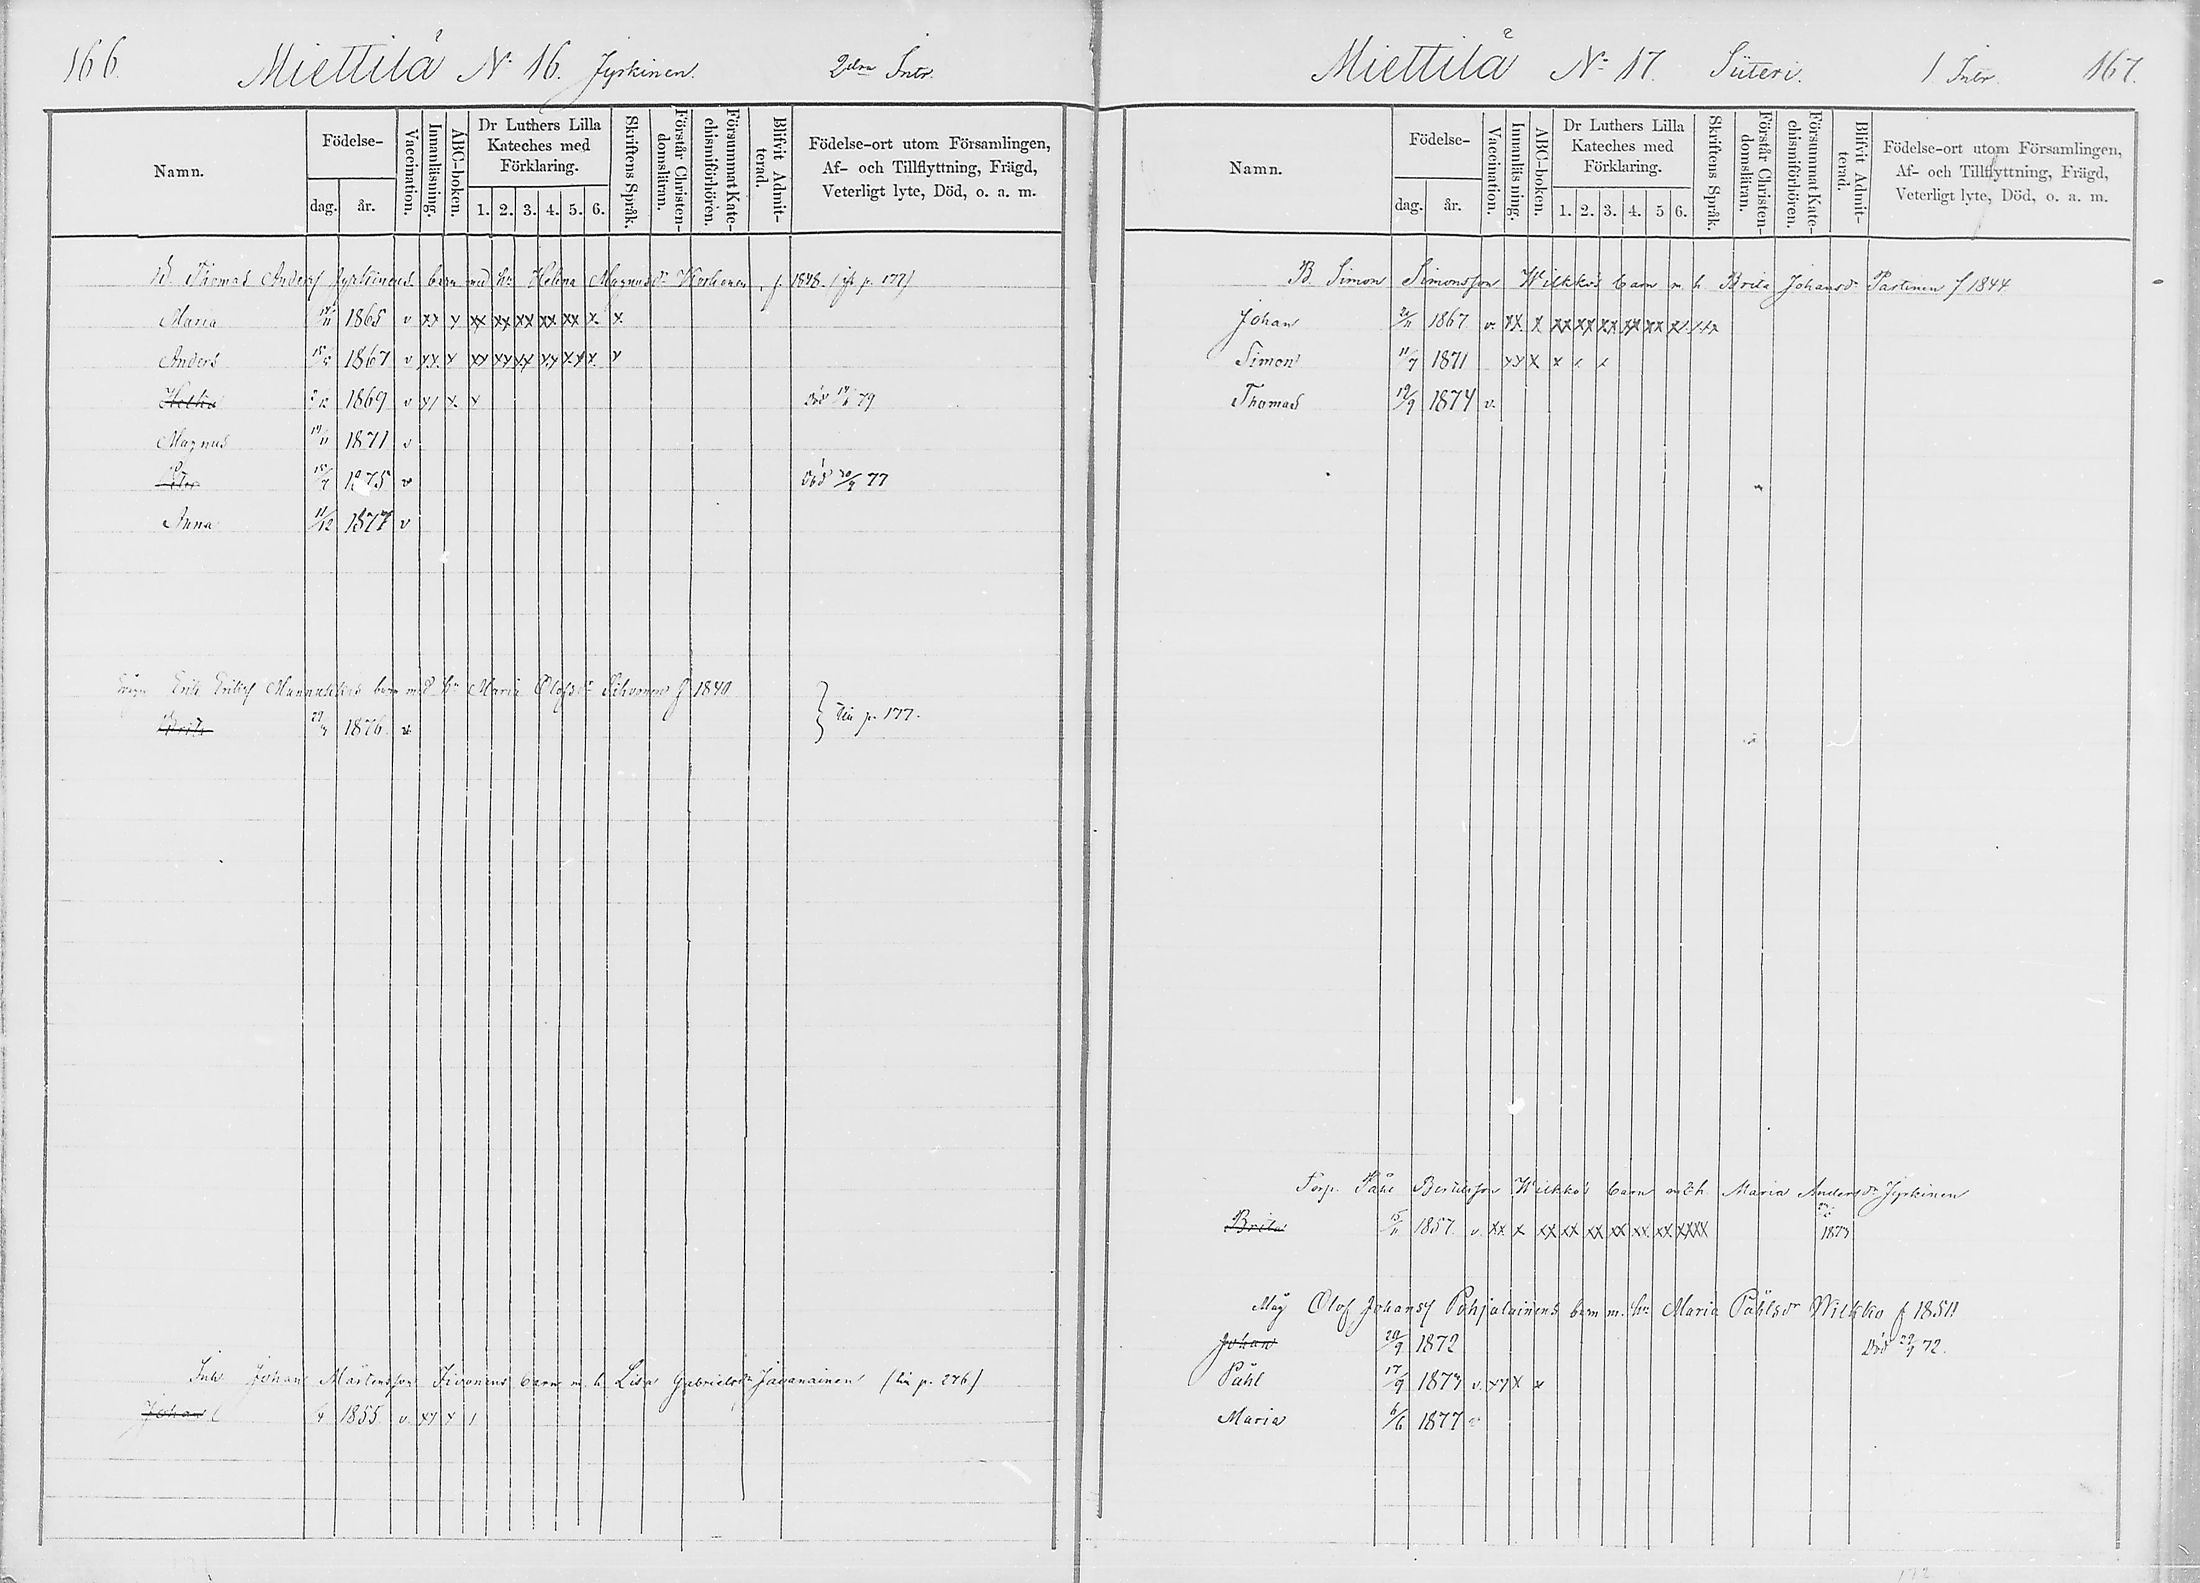 166. Miettilä N:o 16. Jyrkinen. 2dra Intr.
Namn.
Födelse-
dag. år.
Vaccination.
Innanläsning.
ABC-boken.
Dr Luthers Lilla
Kateches med
Förklaring.
1. 2. 3. 4. 5. 6.
Skriftens Språk.
Förstår Christen-
domsläran.
Försummat Kate-
chismiförhören.
Blifvit Admit-
terad.
Födelse-ort utom Församlingen,
Af- och Tillflyttning, Frägd,
Veterligt lyte, Död, o. a. m.
B. Thomas Andersf Jyrkinens barn med hu Helena Magnusdr f. 1848. p. 177)
Maria 1865 v xx x xx xx xx xx xx x x
Anders 1867 v xx x xx xx xx xx xx x x
1869 v x x död 79
Magnus 19/11 1871 v
Peter 15/7 1875 v död 20/9 77
Anna 11/12 1877 v
Erik Eriksf barn med hu Maria Olofsdr f 1840
Brita 1876 v p. 177.
Inh Johan Mårtensson barn m. h. Lisa Gabrielsdr p. 276)
Johan 1855 v. xx x
Miettilä N:o 17. Siiteri. 1 Intr. 167.
Namn.
Födelse-
dag. år.
Vaccination.
Innanläsning.
ABC-boken.
Dr Luthers Lilla
Kateches med
Förklaring.
1. 2. 3. 4. 5 6.
Skriftens Språk.
Förstår Christen-
domsläran.
Försummat Kate-
chismiförhören.
Blifvit Admit-
terad.
Födelse-ort utom Församlingen,
Af- och Tillflyttning, Frägd,
Veterligt lyte, Död, o. a. m.
B. Simon Simonsson Wilkko's barn m. h. Brita Johansdr Partinen f 1844
Johan 1867 v. xx x xx xx xx xx xx
Simon 11/7 1871 xx x x
Thomas 12/9 1874 v.
Torp. Påhl Bertilsson Wilkko's barn m. h. Maria Andersdr Jyrkinen
Brita 1857 v. xx x xx xx xx xx xx xx xxxx 1873
Måg Olof Johansf Pohjalainens barn m. hu Maria Påhlsdr Wilkko f 1851
Johan 20/9 1872 Död 29/9 72.
Påhl 17/9 1873 v xx x x
Maria 6/6 1877 v